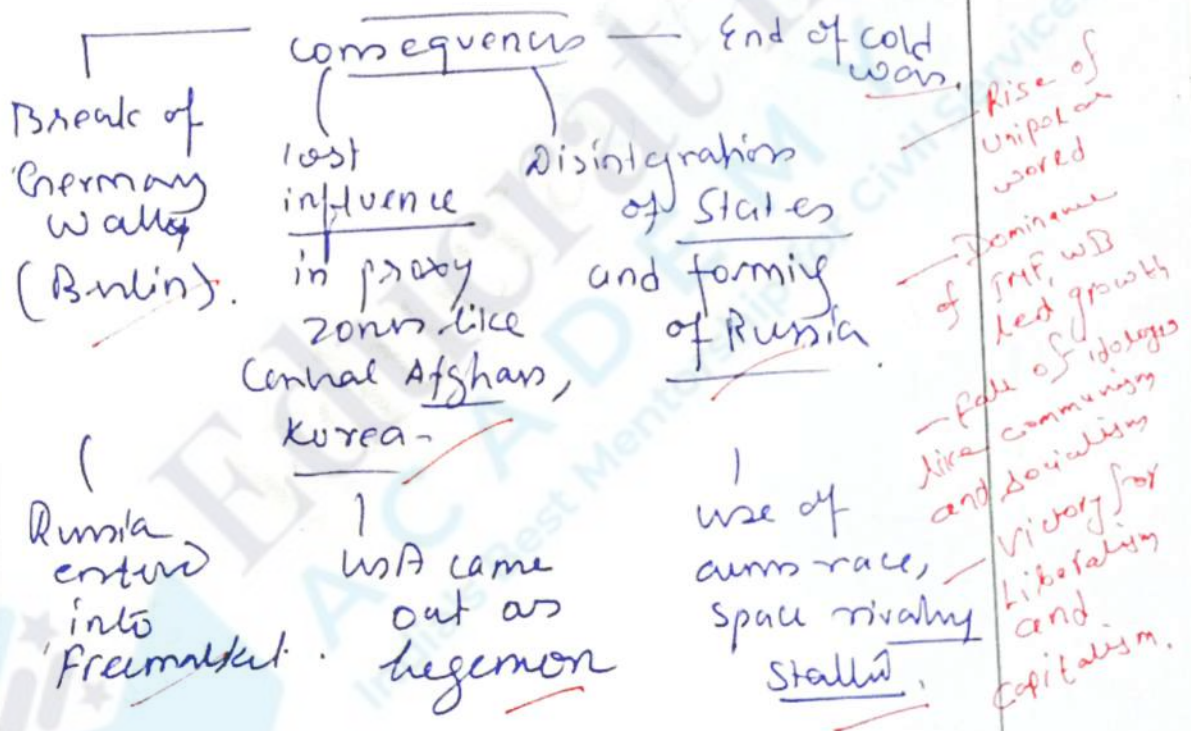 consequences — End of cold
wars.
Break of
Germany
Wall
(Berlin).
lost
influence
in proxy
zones like
Central Afghans,
Korea-
Disintegrations
of States
and forming
of Russia.
Russia
entered
into
Freemarket.
USA came
out as
hegemon
use of
arms race,
space rivalry
stalled.
- Rise of
unipolar
world
- Dominance
of IMF, WB
led growth
- fall of idologies
like communism
and socialism
- Victory for
Liberalism
and
capitalism.
Educrat
ACADEMY
India's Best Mentorship for Civil Service